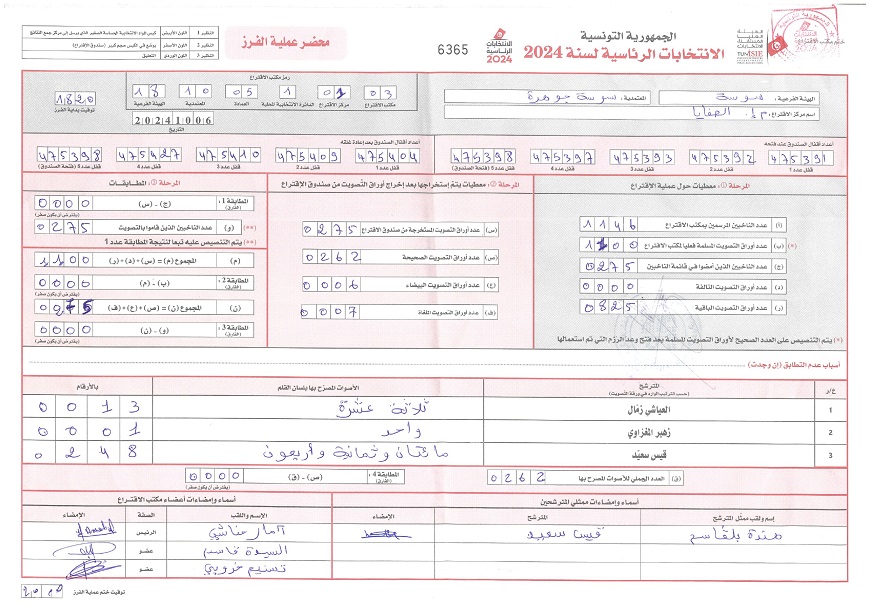 الجمهورية التونسية
الانتخابات الرئاسية لسنة 2024
الانتخابات الرئاسية 2024
6365
محضر عملية الفرز
ختم مكتب الاقتراع
النظير 1 اللون الأبيض
النظير 2 اللون الأصفر
النظير 3 اللون الوردي التعليق
الهيئة الفرعية: سوسة المعتمدية: سوسة جوهرة
اسم مركز الاقتراع:
رمز مكتب الاقتراع
03 01 1 05 10 18
مكتب الاقتراع مركز الاقتراع الدائرة الانتخابية المحلية العمادة المعتمدية الهيئة الفرعية
1820
توقيت بداية الفرز
20241006
التاريخ
أعداد أقفال الصندوق عند فتحه
475391 475392 475393 475397 475398
قفل عدد 1 قفل عدد 2 قفل عدد 3 قفل عدد 4 قفل عدد 5 (فتحة الصندوق)
أعداد أقفال الصندوق بعد إعادة غلقه
475404 475409 475410 475427 475398
قفل عدد 1 قفل عدد 2 قفل عدد 3 قفل عدد 4 قفل عدد 5 (فتحة الصندوق)
المرحلة 1: معطيات حول عملية الاقتراع
(أ) عدد الناخبين المرسمين بمكتب الاقتراع 1146
(*) (ب) عدد أوراق التصويت المسلمة فعليا لمكتب الاقتراع 1100
(ج) عدد الناخبين الذين أمضوا في قائمة الناخبين 0275
(د) عدد أوراق التصويت التالفة 0000
(ر) عدد أوراق التصويت الباقية 0825
(*) يتم التنصيص على العدد الصحيح لأوراق التصويت المسلمة بعد فتح وعد الرزم التي تم استعمالها
المرحلة 2: معطيات يتم إستخراجها بعد إخراج أوراق التصويت من صندوق الإقتراع
(س) عدد أوراق التصويت المستخرجة من صندوق الاقتراع 0275
(ص) عدد أوراق التصويت الصحيحة 0262
(ع) عدد أوراق التصويت البيضاء 0006
(ف) عدد أوراق التصويت الملغاة 0007
المرحلة 3: المطابقات
المطابقة 1: (الفارق) (ج) - (س) 0000
(يفترض أن يكون صفر)
(**) (و) عدد الناخبين الذين قاموا بالتصويت 0275
(**) يتم التنصيص عليه تبعا لنتيجة المطابقة عدد 1
(م) المجموع (م) = (س) + (د) + (ر) 1100
المطابقة 2: (الفارق) (ب) - (م) 0000
(يفترض أن يكون صفر)
(ن) المجموع (ن) = (ص) + (ع) + (ف) 0275
المطابقة 3: (الفارق) (و) - (ن) 0000
(يفترض أن يكون صفر)
أسباب عدم التطابق (إن وجدت)
ع/ر المترشح الأصوات المصرّح بها بلسان القلم بالأرقام
(حسب الترتيب الوارد في ورقة التصويت)
1 العياشي زمّال ثلاثة عشرة 0013
2 زهير المغزاوي واحد 0001
3 قيس سعيّد مائتان وثمانية وأربعون 0248
(ق) العدد الجملي للأصوات المصرح بها 0262
المطابقة 4: (الفارق) (ص) - (ق) 0000
(يفترض أن يكون صفر)
أسماء وإمضاءات ممثلي المترشحين
إسم ولقب ممثّل المترشح المترشح الإمضاء
هندة بلقاسم قيس سعيد
أسماء وإمضاءات أعضاء مكتب الاقتراع
الإسم واللقب الصفة الإمضاء
الرئيس
السيدة قاسم عضو
تسنيم عضو
توقيت ختم عملية الفرز